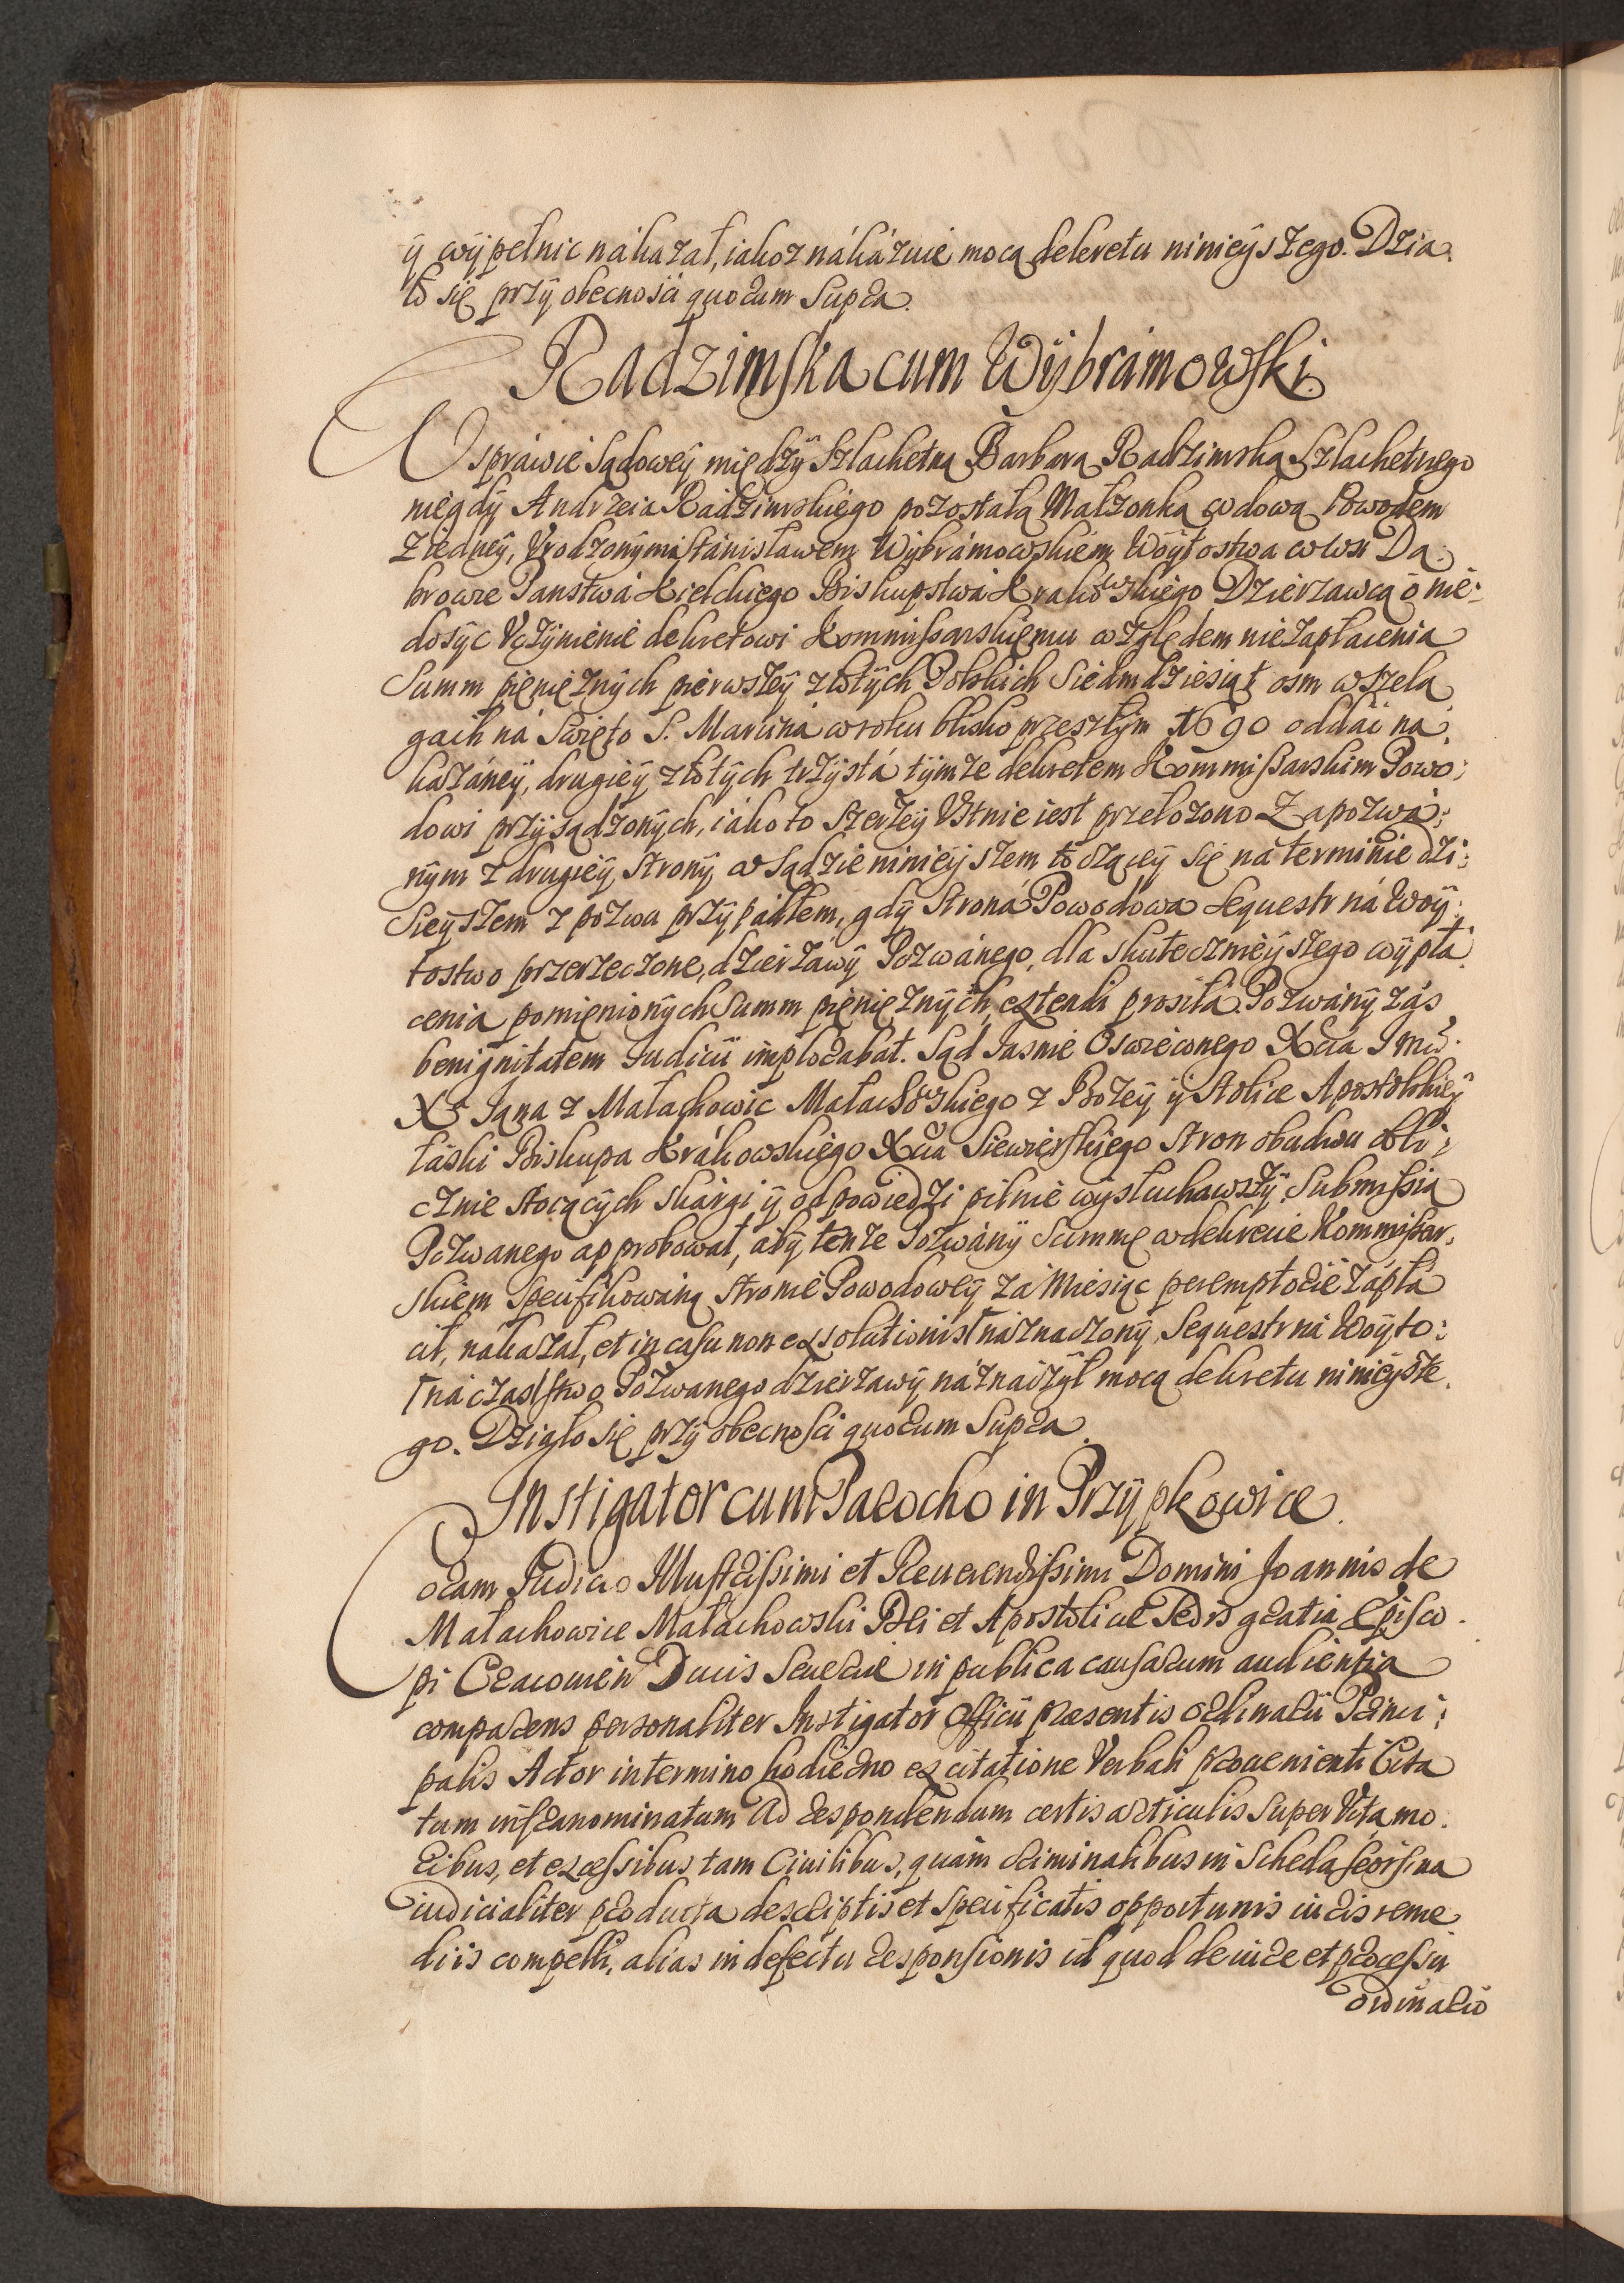 ÿ wÿpełnic nákazał, iakoz nákázuie mocą dekretu ninieÿszego. Dzia
ło się przÿ obecnosci quorum supra.
Radzimska cum Wÿbramowski
W spráwie Sądoweÿ międzÿ Szlachetną Barbarą Radzimską Szlachetnego
niegdÿ Andrzeia Radzimskiego pozostałą Małzonką wdową Powodem
z iedneÿ, Vrodzonÿm Stánisławem Wÿbrámowskiem Woÿtostwa we wsi Dą
browie Panstwá Kielckiego Biskupstwá Krakowskiego Dzierzawcą o nie:
dosÿc Vczÿnienie dekretowi Kommissarskiemu względem niezapłacenia
Summ pięnięznÿch pierwszeÿ złotÿch Polskich Siedmdziesiąt osm w szelą
gach ná Swięto S. Marcina w roku blisko przeszłÿm 1690 oddác ná
kazáneÿ, drugieÿ złotÿch trzÿstá tÿmze dekretem Kommissarskim Powo:
dowi przÿsądzonÿch, iako to szerzeÿ Vstnie iest przełozono Zapozwa:
nÿm z drugieÿ stronÿ w Sądzie ninieÿszem toczączeÿ się ná terminie dzi:
sieÿszem z pozwu przÿpádłem, gdÿ Stroná Powodowa Sequestr ná Woÿ:
tostwo przerzeczone, dzierzáwÿ Pozwánego, dla skutecznieÿszego wÿpła
cenia pomienionÿch Summ pięnięznÿch, extendi prosiłá. Pozwánÿ zás
benignitatem Judicii implorabat. Sąd Jasnie Oswieconego Xcia Jmci
Xa Jana z Małachowic Małachowskiego z Bozeÿ ÿ Stolice Apostolskieÿ
łáski Biskupa Krákowskiego Xcia Siewierskiego Stron obudwu obli:
cznie stoiącÿch skárgi ÿ odpowiedzi pilnie wÿsłuchawszÿ, Submissią
Pozwanego approbował, abÿ tenze Pozwánÿ Summę w dekrecie Kommissar,
skiem specifikowáną stronie Powodoweÿ zá Miesiąc peremptorie zápłá
cił, nakazał, et in casu non exsolutionis ⌈náznaczonÿ Sequestr ná Woÿto:
⌈ná czás⌉ stwo Pozwanego dzierzawÿ náznáczÿł mocą dekretu ninieÿsze
go. Działo się przÿ obecnosci quorum supra.
Instigator cum Parocho in Przÿpkowice.
Coram Judicio Illustrissimi et Reuerendissimi Domini Joannis de
Małachowice Małachowski Dei et Apostolicae Sedis gratia Episco
pi Cracouien Ducis Seueriae in publica causarum audientia
comparens personaliter Instigator Officii praesentis ordinarii Princi:
palis Actor in termino hodierno ex citatione Verbali prouenienti Cita
tum infranominatum ad respondendum certis articulis super Vita mo
ribus, et excessibus tam Ciuilibus, quàm criminalibus in Scheda seorsiua
iudicialiter producta descriptis et specificatis opportunis iuris reme
diis compelli, alias in defectu responsionis id quod de iure et processu
ordinario